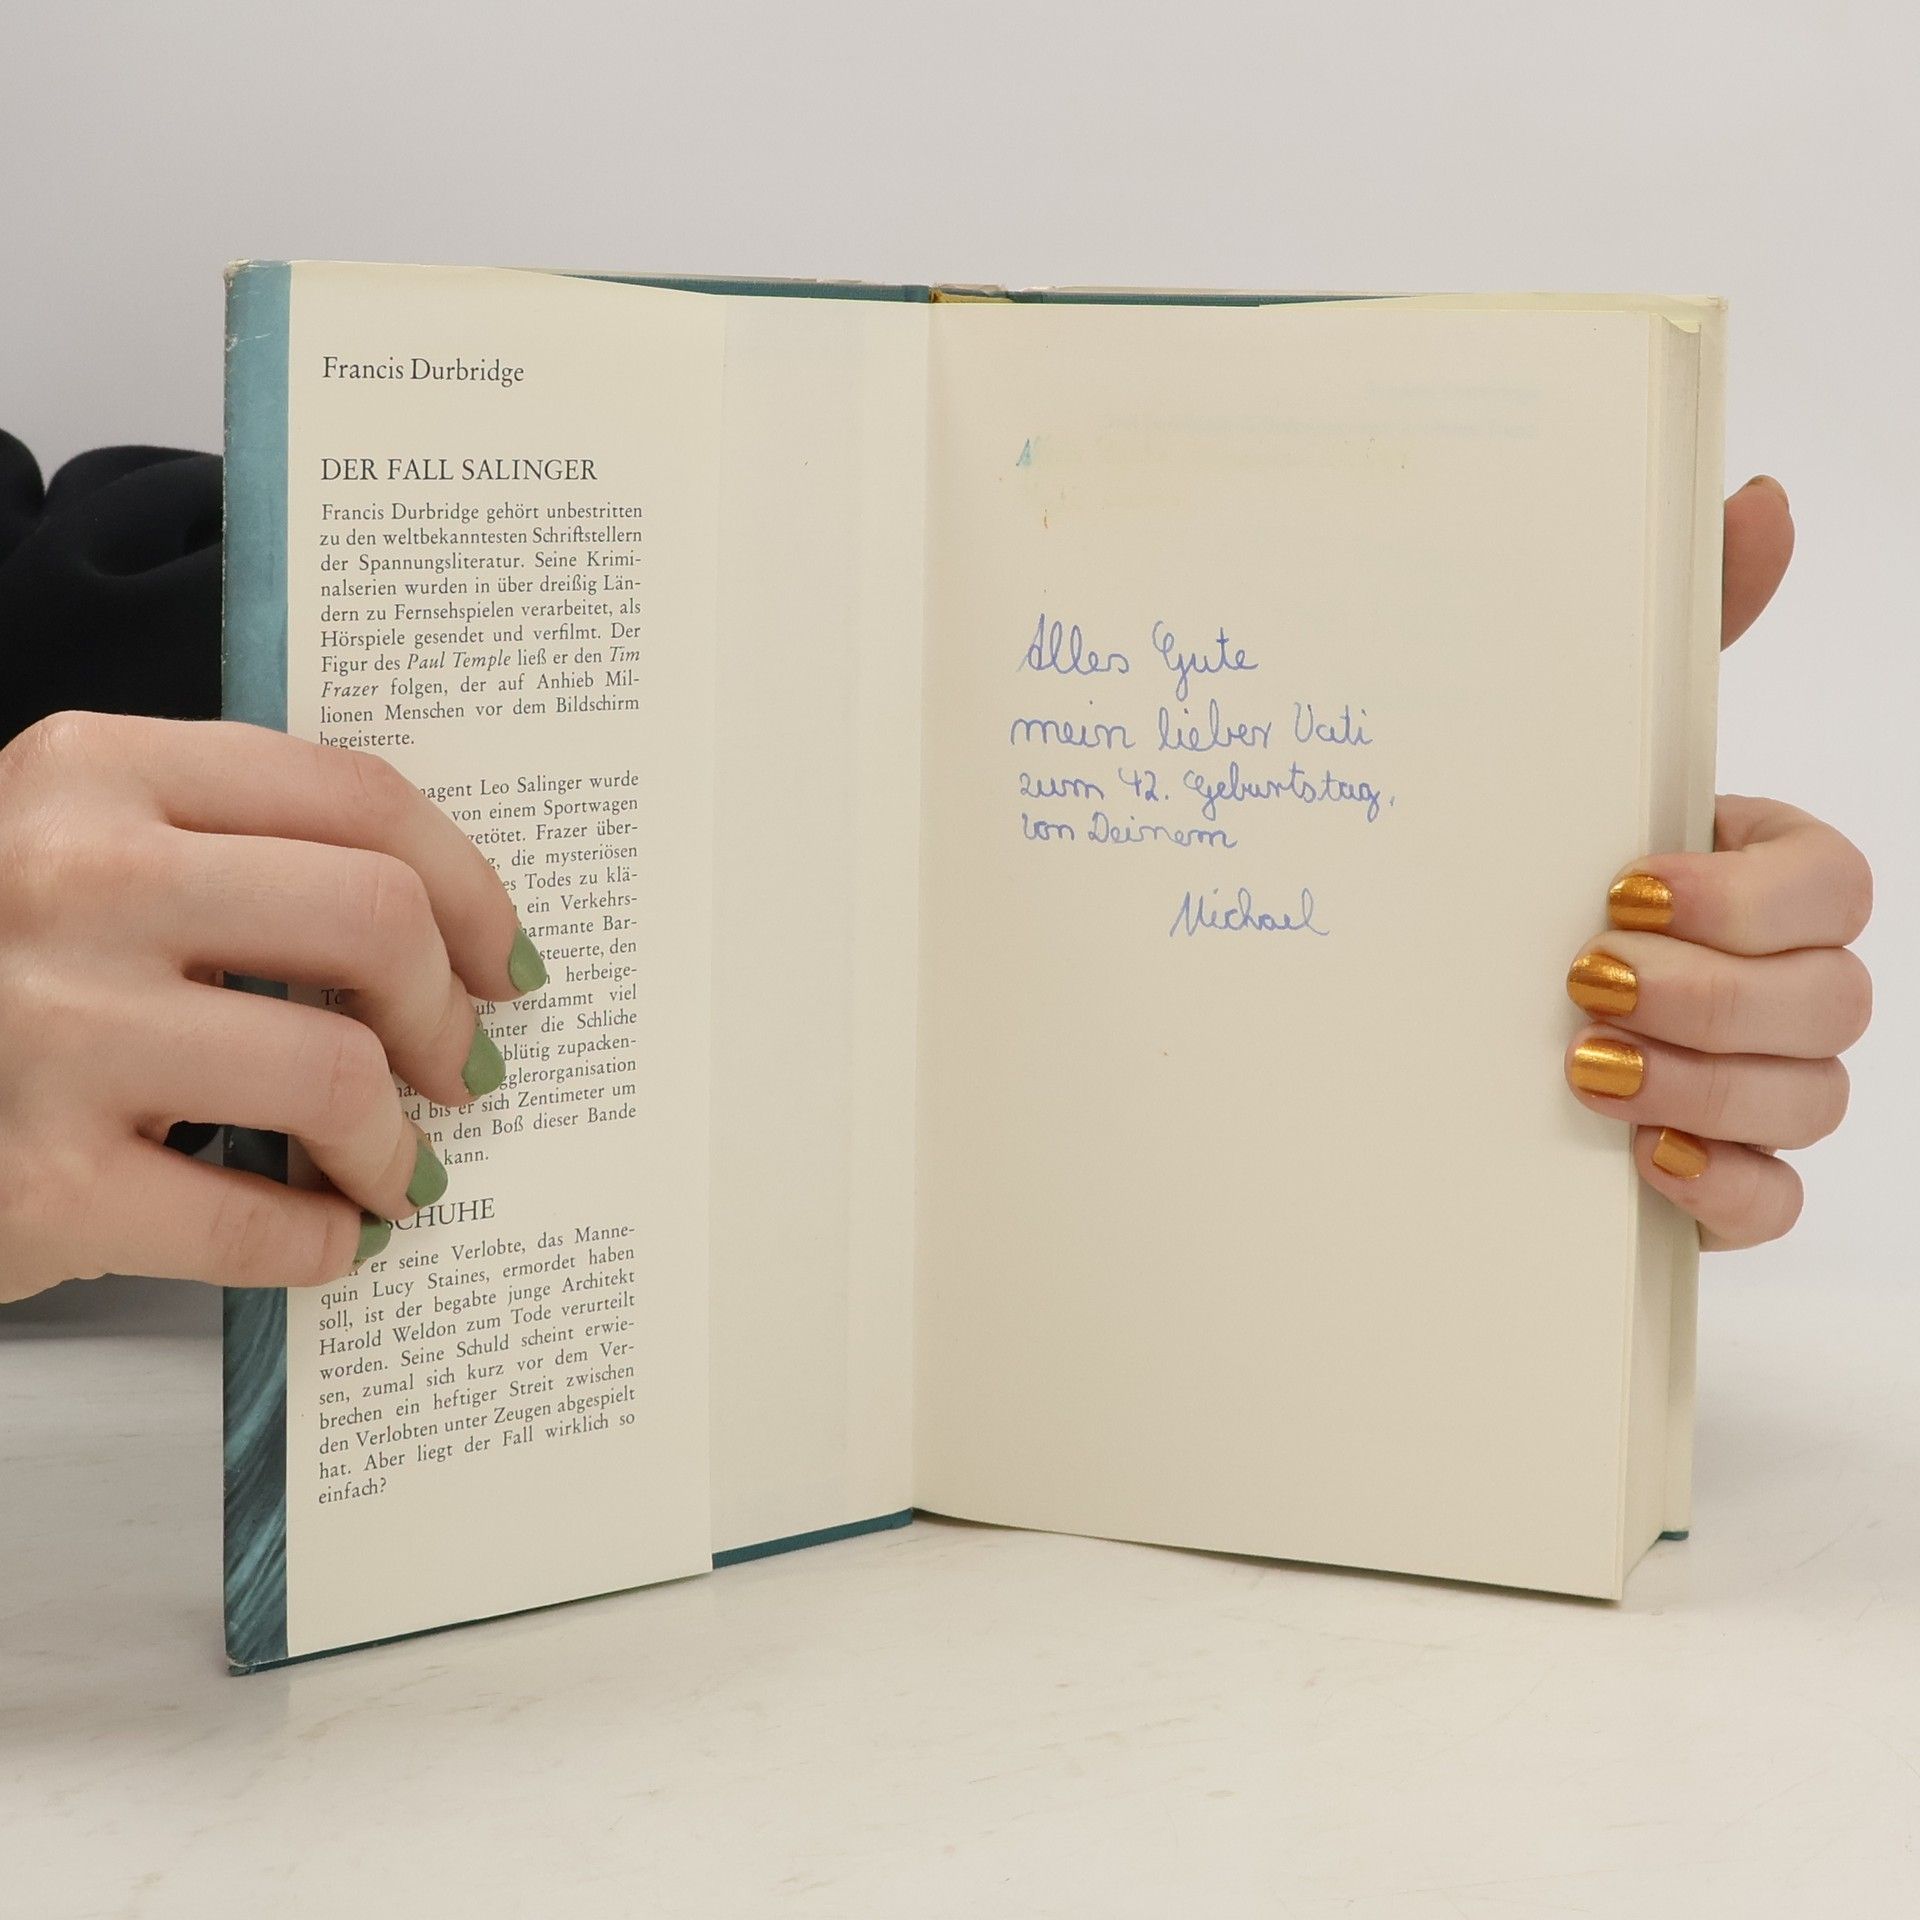 Francis Durbridge
DER FALL SALINGER
Francis Durbridge gehört unbestritten
zu den weltbekanntesten Schriftstellern
der Spannungsliteratur. Seine Krimi-
nalserien wurden in über dreißig Län-
dern zu Fernsehspielen verarbeitet, als
Hörspiele gesendet und verfilmt. Der
Figur des Paul Temple ließ er den Tim
Frazer folgen, der auf Anhieb Mil-
lionen Menschen vor dem Bildschirm
begeisterte.
Leo Salinger wurde
von einem Sportwagen
getötet. Frazer über-
die mysteriösen
Todes zu klä-
ein Verkehrs-
Bar-
steuerte, den
herbeige-
verdammt viel
hinter die Schliche
zupacken-
bis er sich Zentimeter um
an den Boß dieser Bande
kann.
SCHUHE
er seine Verlobte, das Manne-
quin Lucy Staines, ermordet haben
soll, ist der begabte junge Architekt
Harold Weldon zum Tode verurteilt
worden. Seine Schuld scheint erwie-
sen, zumal sich kurz vor dem Ver-
brechen ein heftiger Streit zwischen
den Verlobten unter Zeugen abgespielt
hat. Aber liegt der Fall wirklich so
einfach?
Alles Gute
mein lieber Vati
zum 42. Geburtstag,
von Deinem
Michael